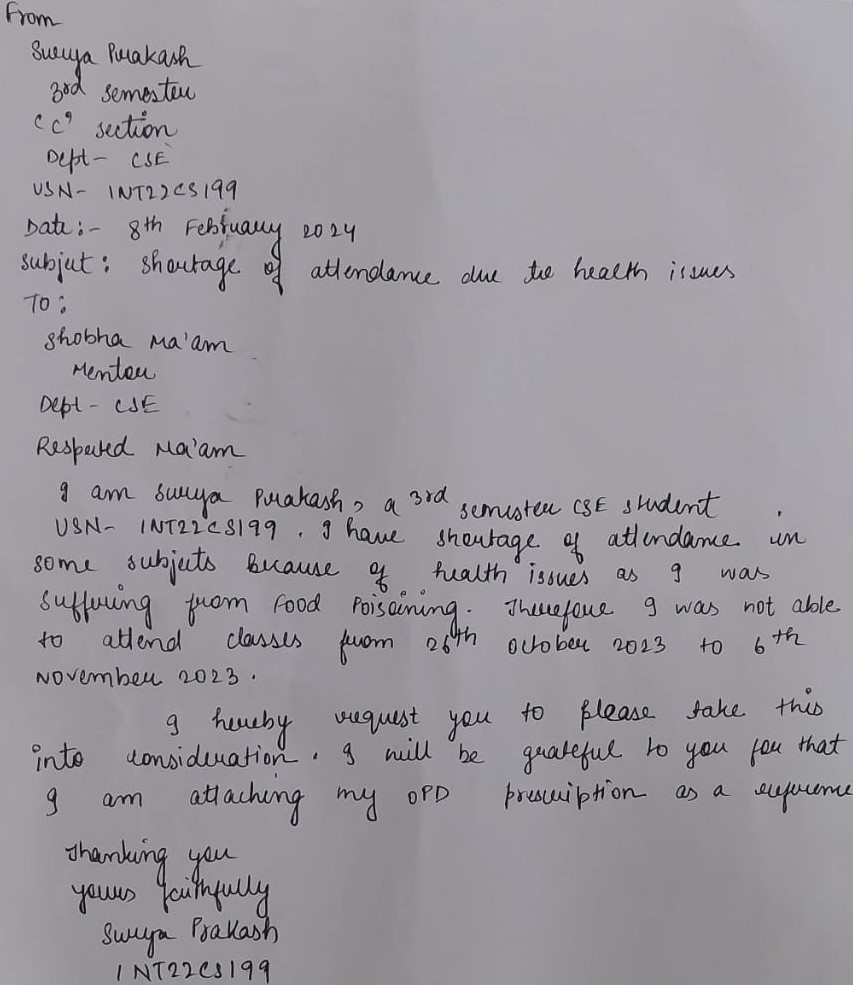 From
Surya Prakash
3rd semester
'C' section
Dept - CSE
USN - 1NT22CS199
Date :- 8th February 2024
Subject : Shortage of attendance due to health issues
TO :
Shobha Ma'am
Mentor
Dept - CSE
Respected Ma'am
I am Surya Prakash, a 3rd semester CSE student
USN - 1NT22CS199. I have shortage of attendance in
some subjects because of health issues as I was
suffering from Food Poisoining. Therefore I was not able
to attend classes from 26th October 2023 to 6th
November 2023.
I hereby request you to please take this
into consideration. I will be grateful to you for that
I am attaching my OPD prescription as a reference
Thanking you
yours faithfully
Surya Prakash
1NT22CS199